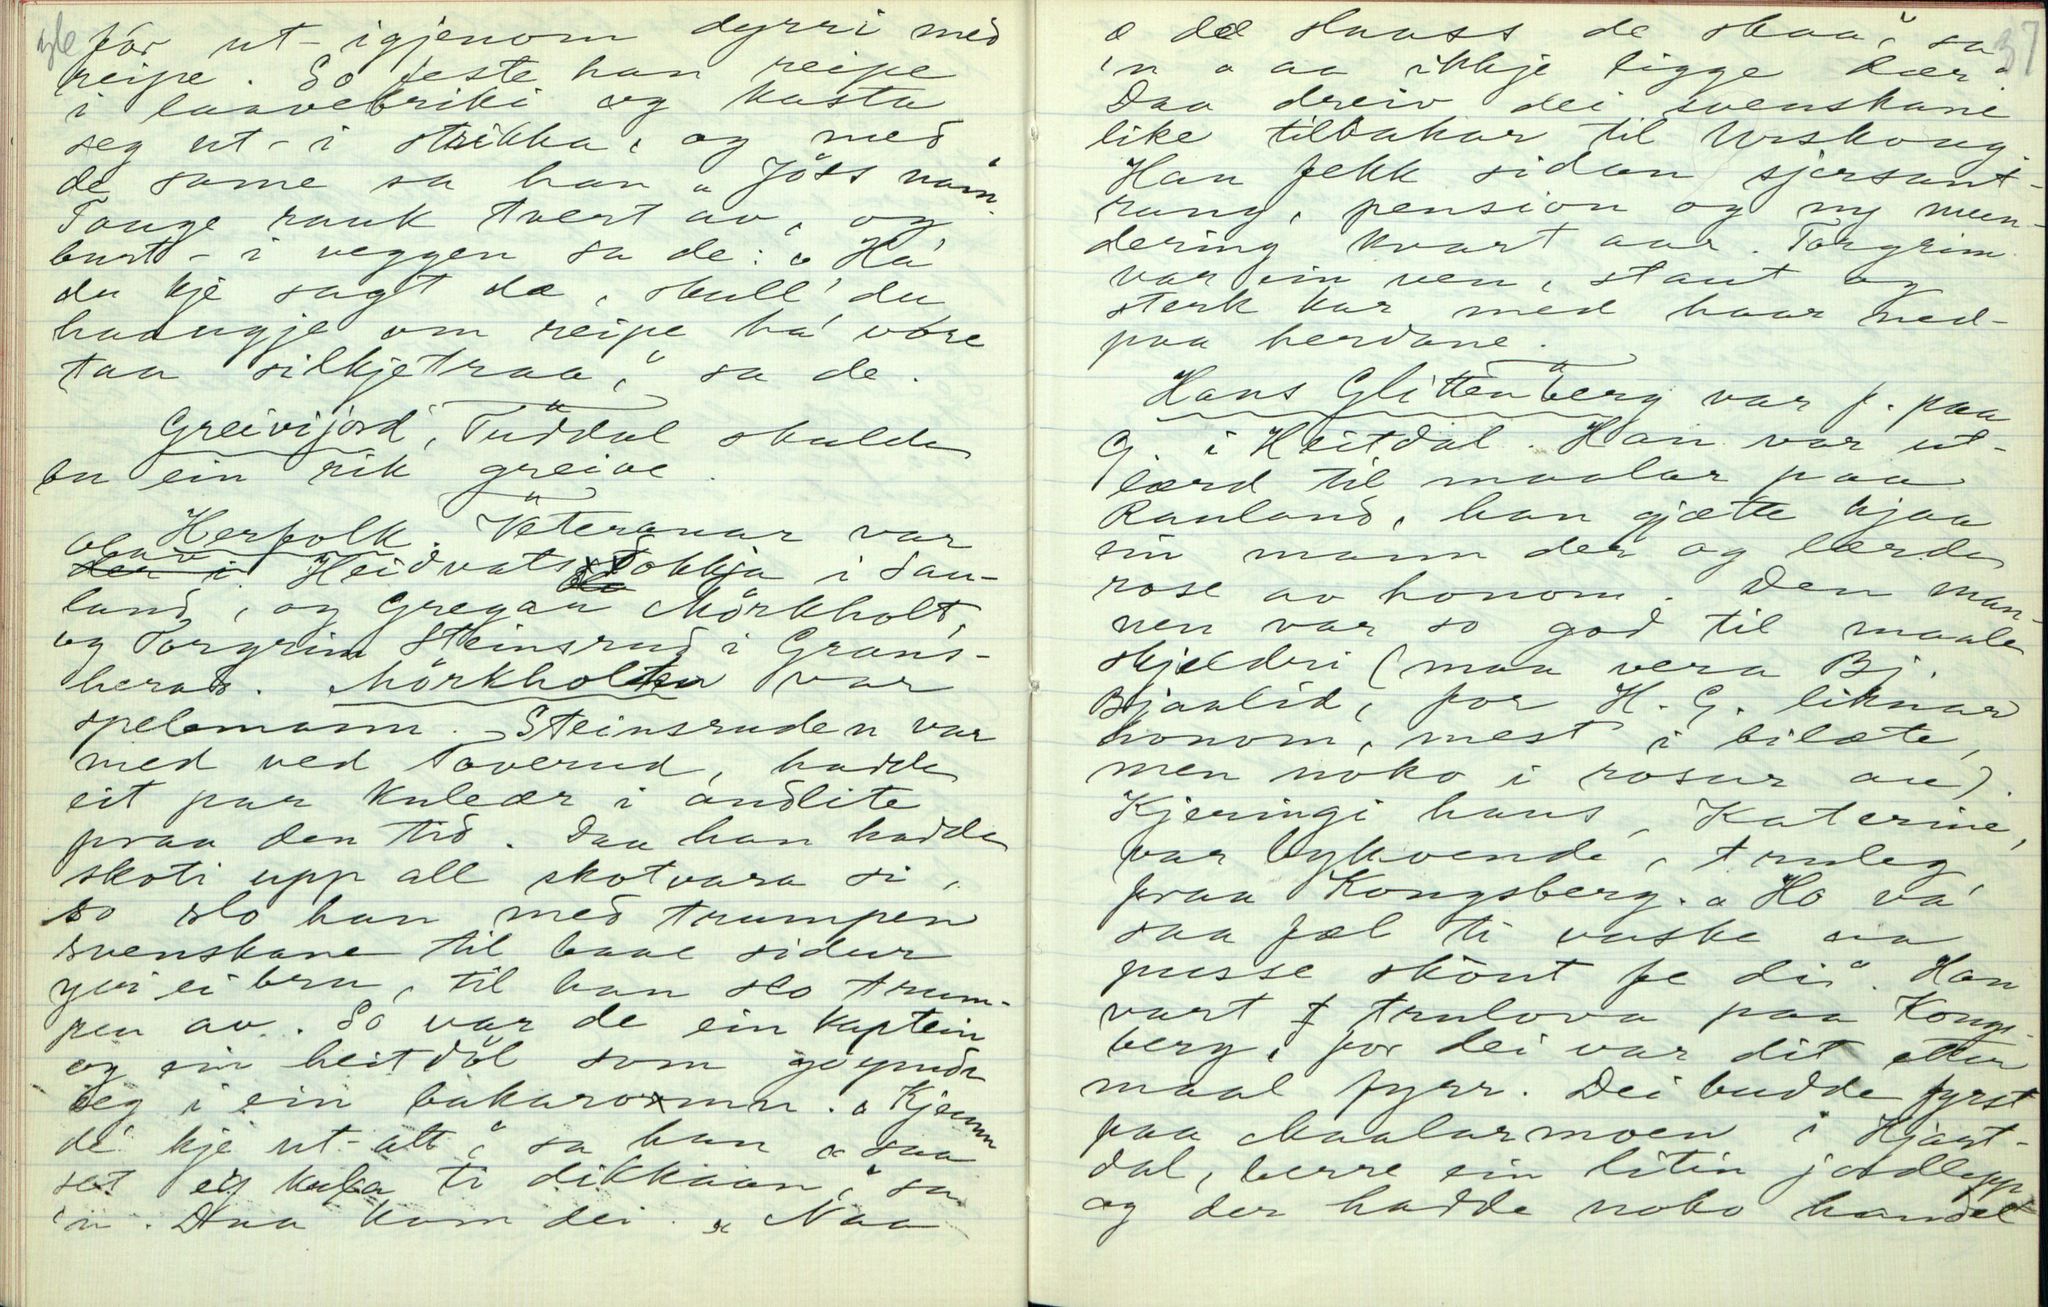 36
fór ut-igjenom dyrri med
reipe. So feste han reipe
i laavebriki og kasta
seg ut-i strikka, og med
de same sa han "Jöss nam".
Tauge rauk tvert av, og
burt-i veggen sa de: "Ha'
du kje sagt da, skull' du
haangje om reipe ha' vore
taa silkjetraa," sa de.
Greivijord, Tuddal skulde
bu ein rik greive.
Herfolk. Veteranar var
Olav
der i Heidvats Tokkja i Sau-
land, og Gregar Mörkholt,
og Torgrim Steinsrud i Grans-
herad. Mörkholten var
spelemann. Steinsruden var
med ved Toverud, hadde
eit par kuleær i andlite
praa den tid. Daa han hadde
skoti upp all skotvara si,
so slo han med trumpen
svenskane til baae sidur
yvi ei bru, til han slo trum-
pen av. So var de ein kaptein
og ein heitdöl som göymde
seg i ein bakaromn. "Kjemm
de' kje ut-att," sa han "saa
set eg kula ti dikkaan," sa
'n. Daa kom dei. "Naa
37
æ dæ slaass de skaa," sa
'n "aa ikkje ligge dær"
Daa dreiv dei svenskane
like tilbakar til Urskoug.
Han fekk sidan sjersant-
rang, pension og ny mun-
dering kvart aar. Torgrim
var ein ven, staut og
sterk kar med haar ned-
paa herdane.
Hans Glittenberg var f. paa
G. i Heitdal. Han var ut-
lærd til maalar paa
Rauland, han gjætte hjaa
ein mann der og lærde
rose av honom. Den man-
nen var so god til maale
skjælderi (maa vera Bj.
Bjaalid, for H. G. liknar
honom, mest i bilæte,
men noko i rosur au).
Kjeringi hans, Katerine,
var bykvende, truleg
fraa Kongsberg. "Ho va'
saa fæl ti vaske aa
pusse skönt fe di". Han
vart trulova paa Kongs-
berg, for dei var dit etter
maal fyrr. Dei budde fyrst
paa Maalarmoen i Hjart-
dal, berre ein litin jordlepp
og der hadde noko handel